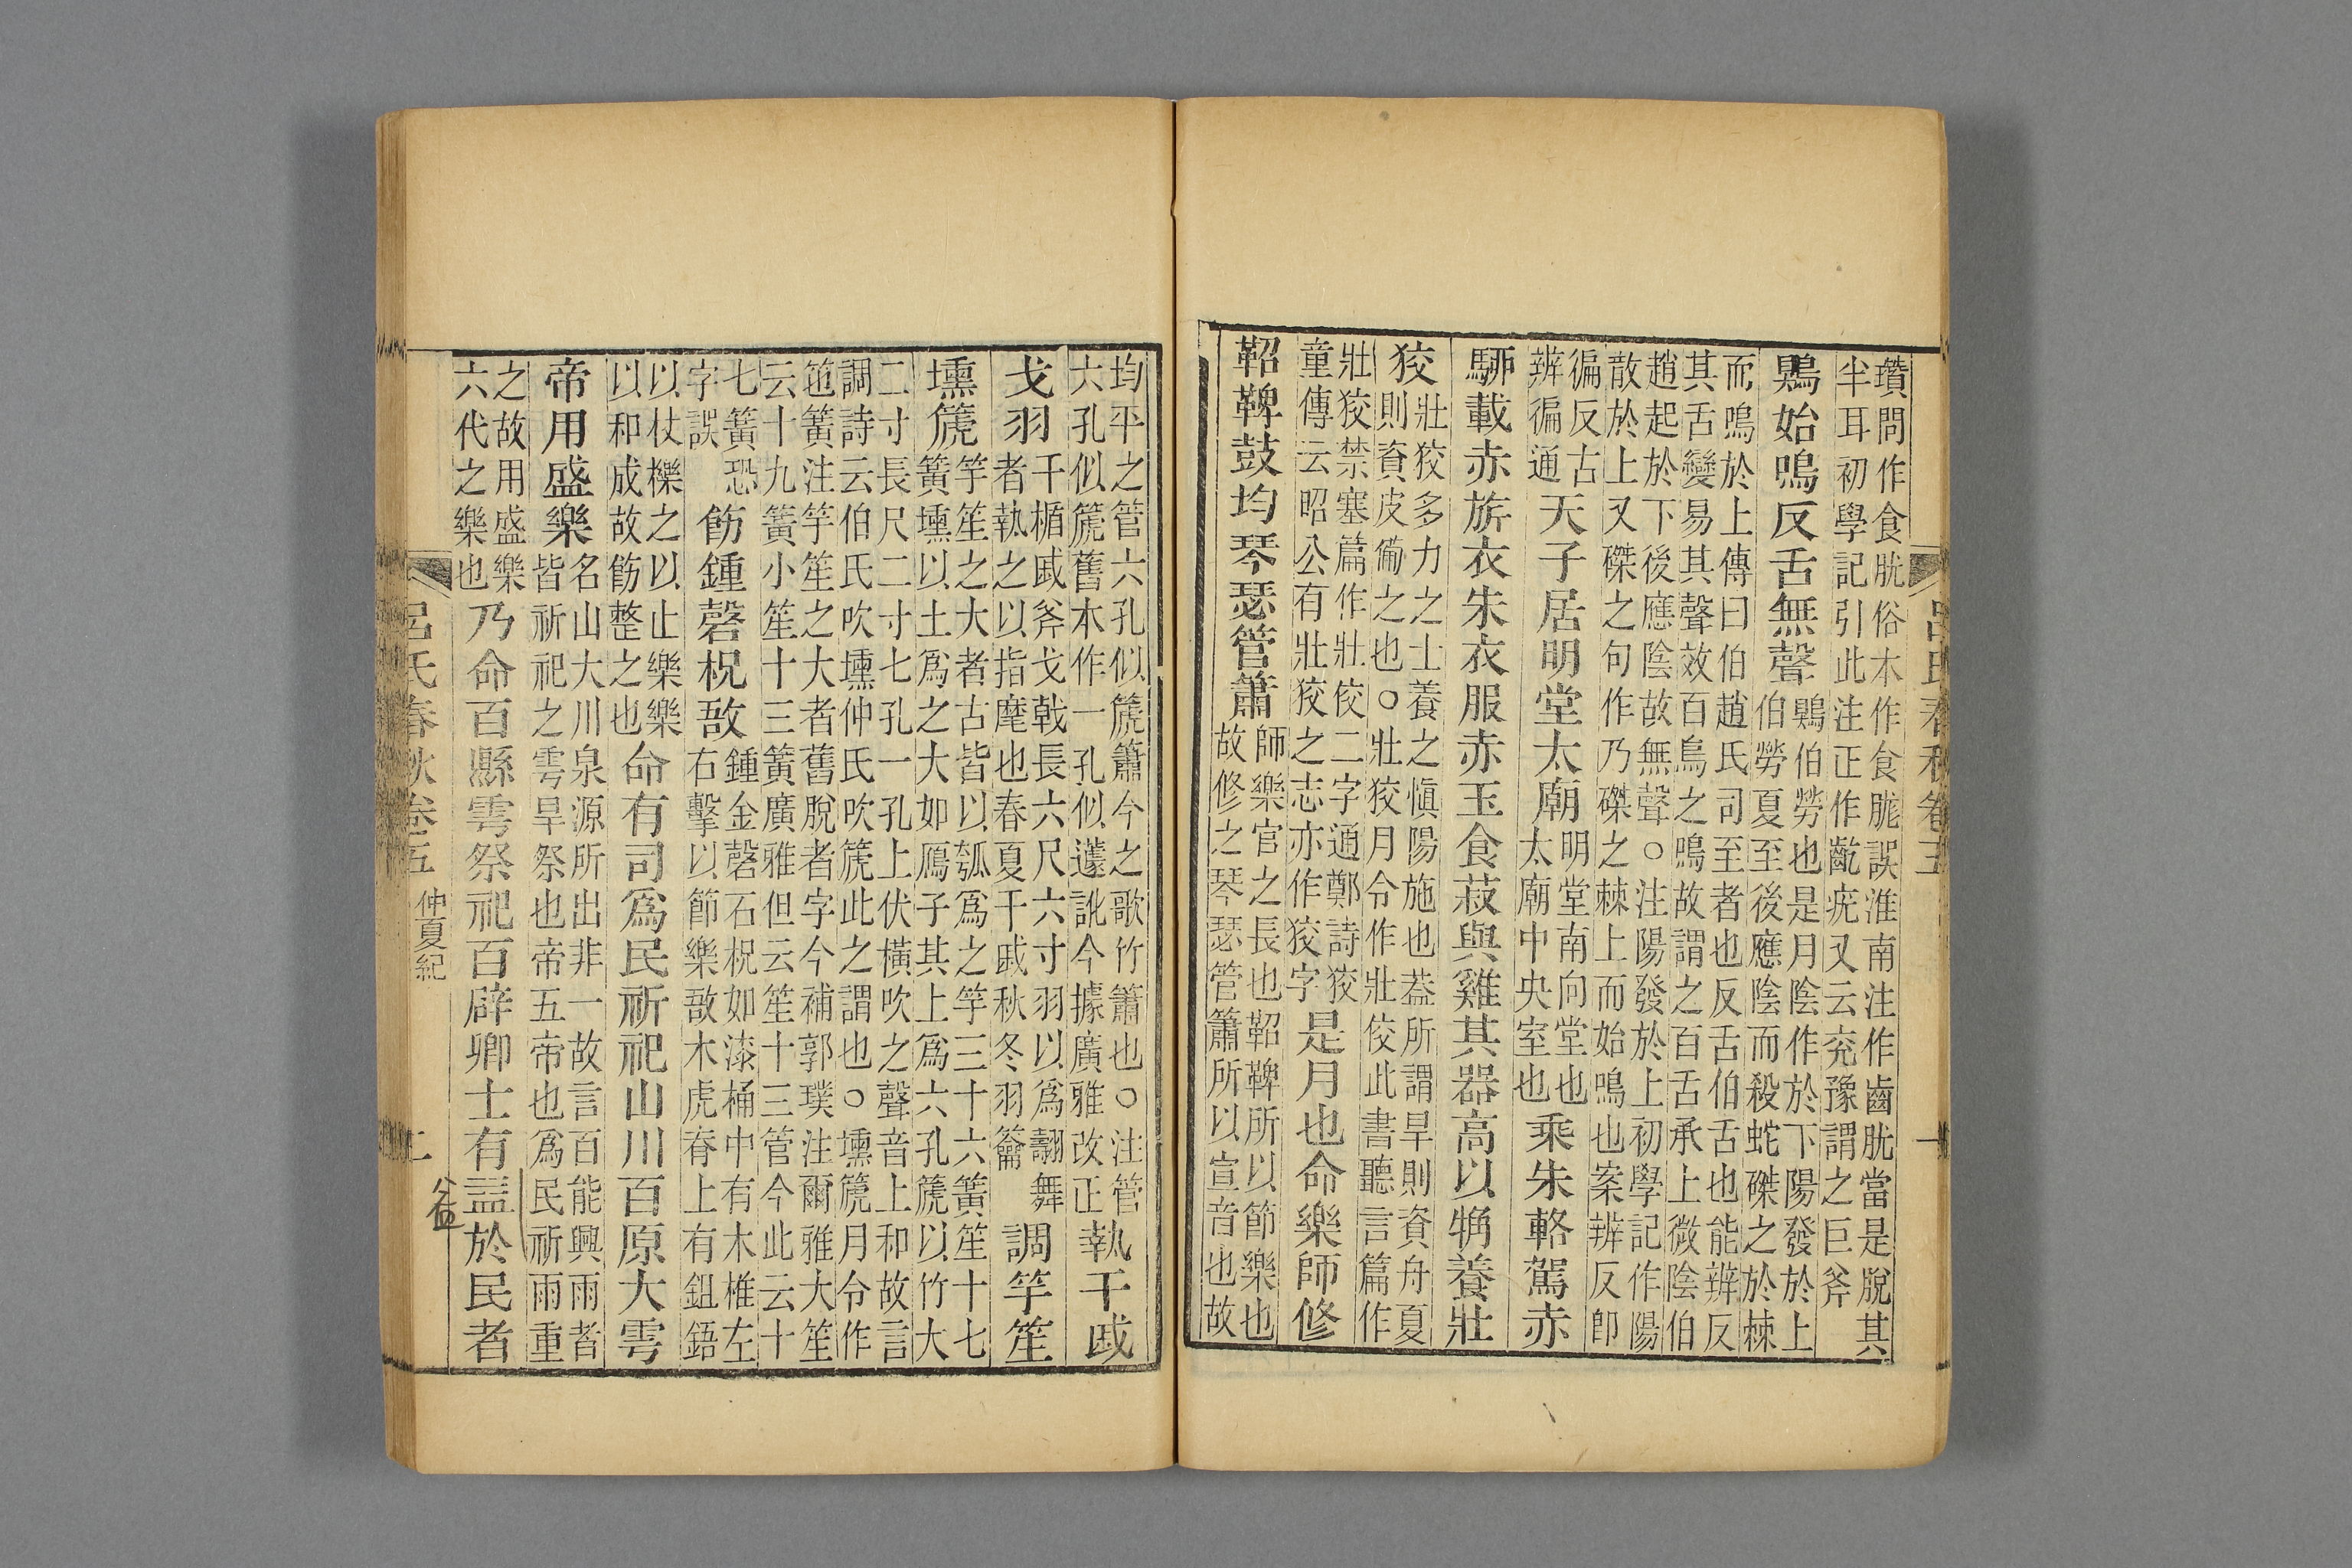 瓚問作食脁俗本作食朧誤淮南注作齒脁當是脫其
半耳初學記引此注正作齔疣又云兖豫謂之巨斧
鶪始鳴反舌無聲
鶪伯勞也是月陰作於下陽發於上
伯勞夏至後應陰而殺蛇磔之於棘
而鳴於上傳曰伯趙氏司至者也反舌伯舌也能辨反
其舌變易其聲效百鳥之鳴故謂之百舌承上微陰伯
趙起於下後應陰故無聲○注陽發於上初學記作陽
散於上又磔之句作乃磔之棘上而始鳴也案辨反卽
徧反古
辨徧通
天子居明堂太廟
明堂南向堂也
太廟中央室也
乘朱輅駕赤
駵載赤旂衣朱衣服赤玉食菽與雞其器高以觕養壯
狡
壯狡多力之士養之愼陽施也葢所謂旱則資舟夏
則資皮葡之也○壯狡月令作壯佼此書聽言篇作
壯狡禁塞篇作壯佼二字通鄭詩狡
童傳云昭公有壯狡之志亦作狡字
是月也命樂師修
鞀鞞鼓均琴瑟管簫
師樂官之長也鞀鞞所以節樂也
故修之琴瑟管簫所以宣音也故
均平之管六孔似篪簫今之歌竹簫也○注管
六孔似篪舊本作一孔似籧訛今據廣雅改正
執干戚
戈羽
干楯戚斧戈戟長六尺六寸羽以爲翿舞
者執之以指麾也春夏干戚秋冬羽籥
調竽笙
壎篪
竽笙之大者古皆以瓠爲之竽三十六簧笙十七
簧壎以土爲之大如鴈子其上爲六孔篪以竹大
二寸長尺二寸七孔一孔上伏橫吹之聲音上和故言
調詩云伯氏吹壎仲氏吹篪此之謂也○壎篪月令作
竾簧注竽笙之大者舊脫者字今補郭璞注爾雅大笙
云十九簧小笙十三簧廣雅但云笙十三管今此云十
七簧恐
字誤
飭鍾磬柷敔
鍾金磬石柷如漆桶中有木椎左
右擊以節樂敔木虎脊上有鉏鋙
以杖櫟之以止樂樂
以和成故飭整之也
命有司爲民祈祀山川百原大雩
帝用盛樂
名山大川泉源所出非一故言百能興雨者
皆祈祀之雩旱祭也帝五帝也爲民祈雨重
之故用盛樂
六代之樂也
乃命百縣雩祭祀百辟卿士有益於民者
呂氏春秋卷五 仲夏紀 二